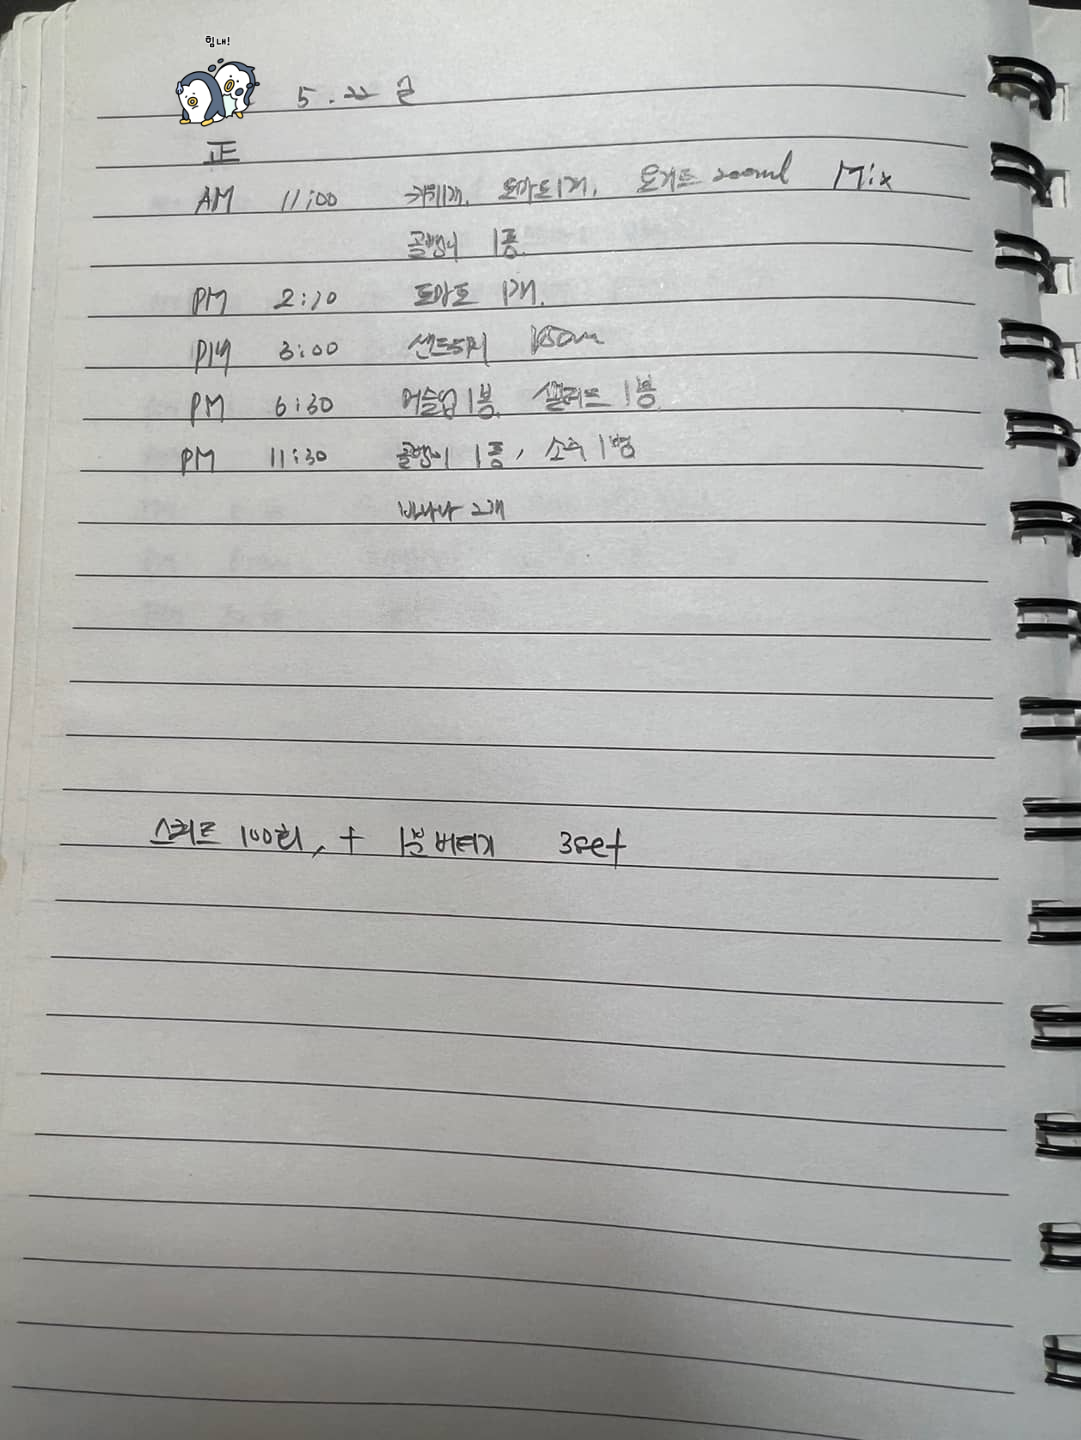 힘내!
5.22 금
正
AM 11:00 키위1개. 토마토1개. 요거트 200ml Mix
골뱅이 1종.
PM 2:10 토마토 1개.
PM 3:00 샌드위치 15cm
PM 6:30 머슬업1봉. 샐러드 1봉.
PM 11:30 골뱅이 1종, 소주 1병
바나나 2개
스쿼트 100회, + 1분 버티기 3set